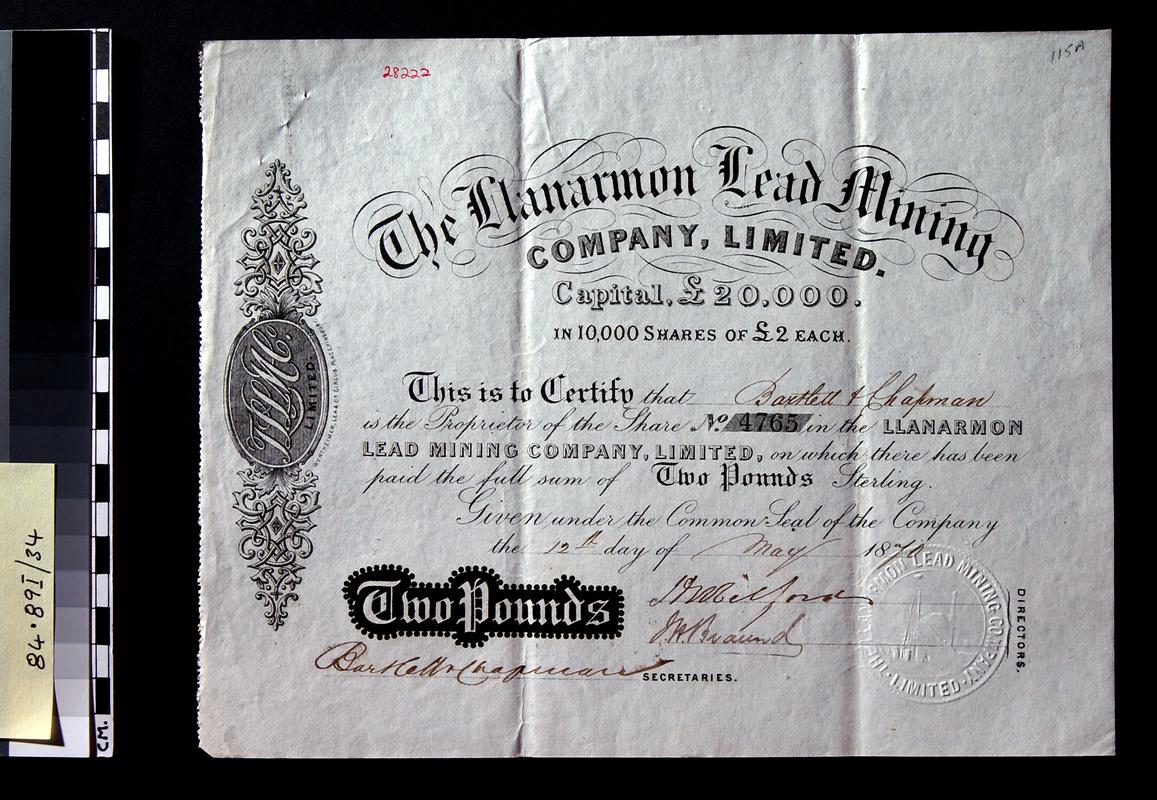 115A
28222
The Llanarmon Lead Mining
COMPANY, LIMITED.
Capital, £20,000.
IN 10,000 SHARES OF £2 EACH.
This is to Certify that Bartlett & Chapman
is the Proprietor of the Share No. 4765 in the LLANARMON
LEAD MINING COMPANY, LIMITED, on which there has been
paid the full sum of Two Pounds Sterling.
Given under the Common Seal of the Company
the 12th day of May 1870
Two Pounds
J. H. Braund
DIRECTORS.
Bartlett & Chapman SECRETARIES.
THE LLANARMON LEAD MINING COMPANY LIMITED
LIMITED.
84.89I/34
CM.